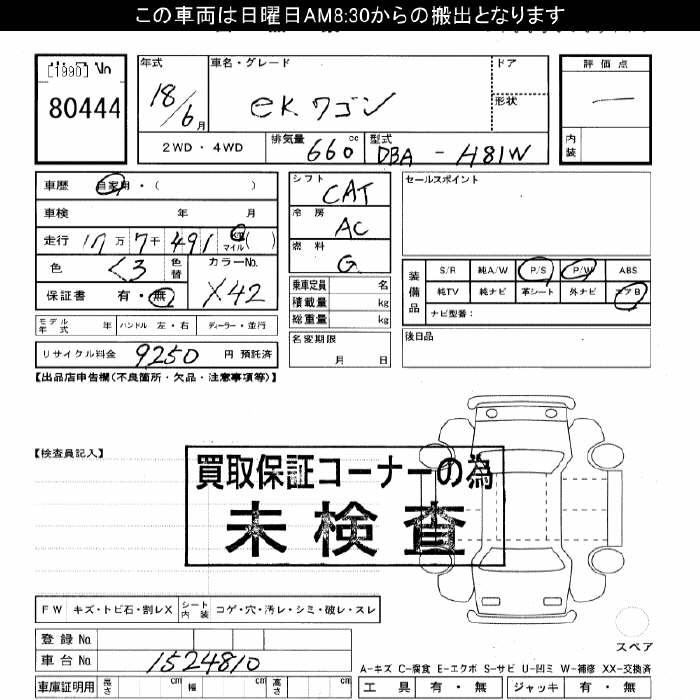 この車両は日曜日AM8:30からの搬出となります
[1990] No
80444
年式 18/6月
車名・グレード ekワゴン
ドア
形状
評価点 —
内装
2WD・4WD
排気量 660 cc
型式 DBA - H81W
車歴 自家用・( )
車検 年 月
走行 17万7千491 km マイル ( )
色 くろ 色替 カラーNo. X42
保証書 有・無
モデル年式 年 ハンドル 左・右 ディーラー・並行
リサイクル料金 9250 円 預託済
シフト CAT
冷房 AC
燃料 G
乗車定員 名
積載量 kg
総重量 kg
名変期限 月 日
セールスポイント
装備品 S/R 純A/W P/S P/W ABS
純TV 純ナビ 革シート 外ナビ エアB
ナビ型番:
後日品
【出品店申告欄(不良箇所・欠品・注意事項等)】
【検査員記入】
買取保証コーナーの為
未検査
FW キズ・トビ石・割レX シート内装 コゲ・穴・汚レ・シミ・破レ・スレ
登録No.
車台No. 1524810
車庫証明用 長さ cm 幅 cm 高さ cm
スペア
A-キズ C-腐食 E-エクボ S-サビ U-凹ミ W-補修 XX-交換済
工具 有・無 ジャッキ 有・無